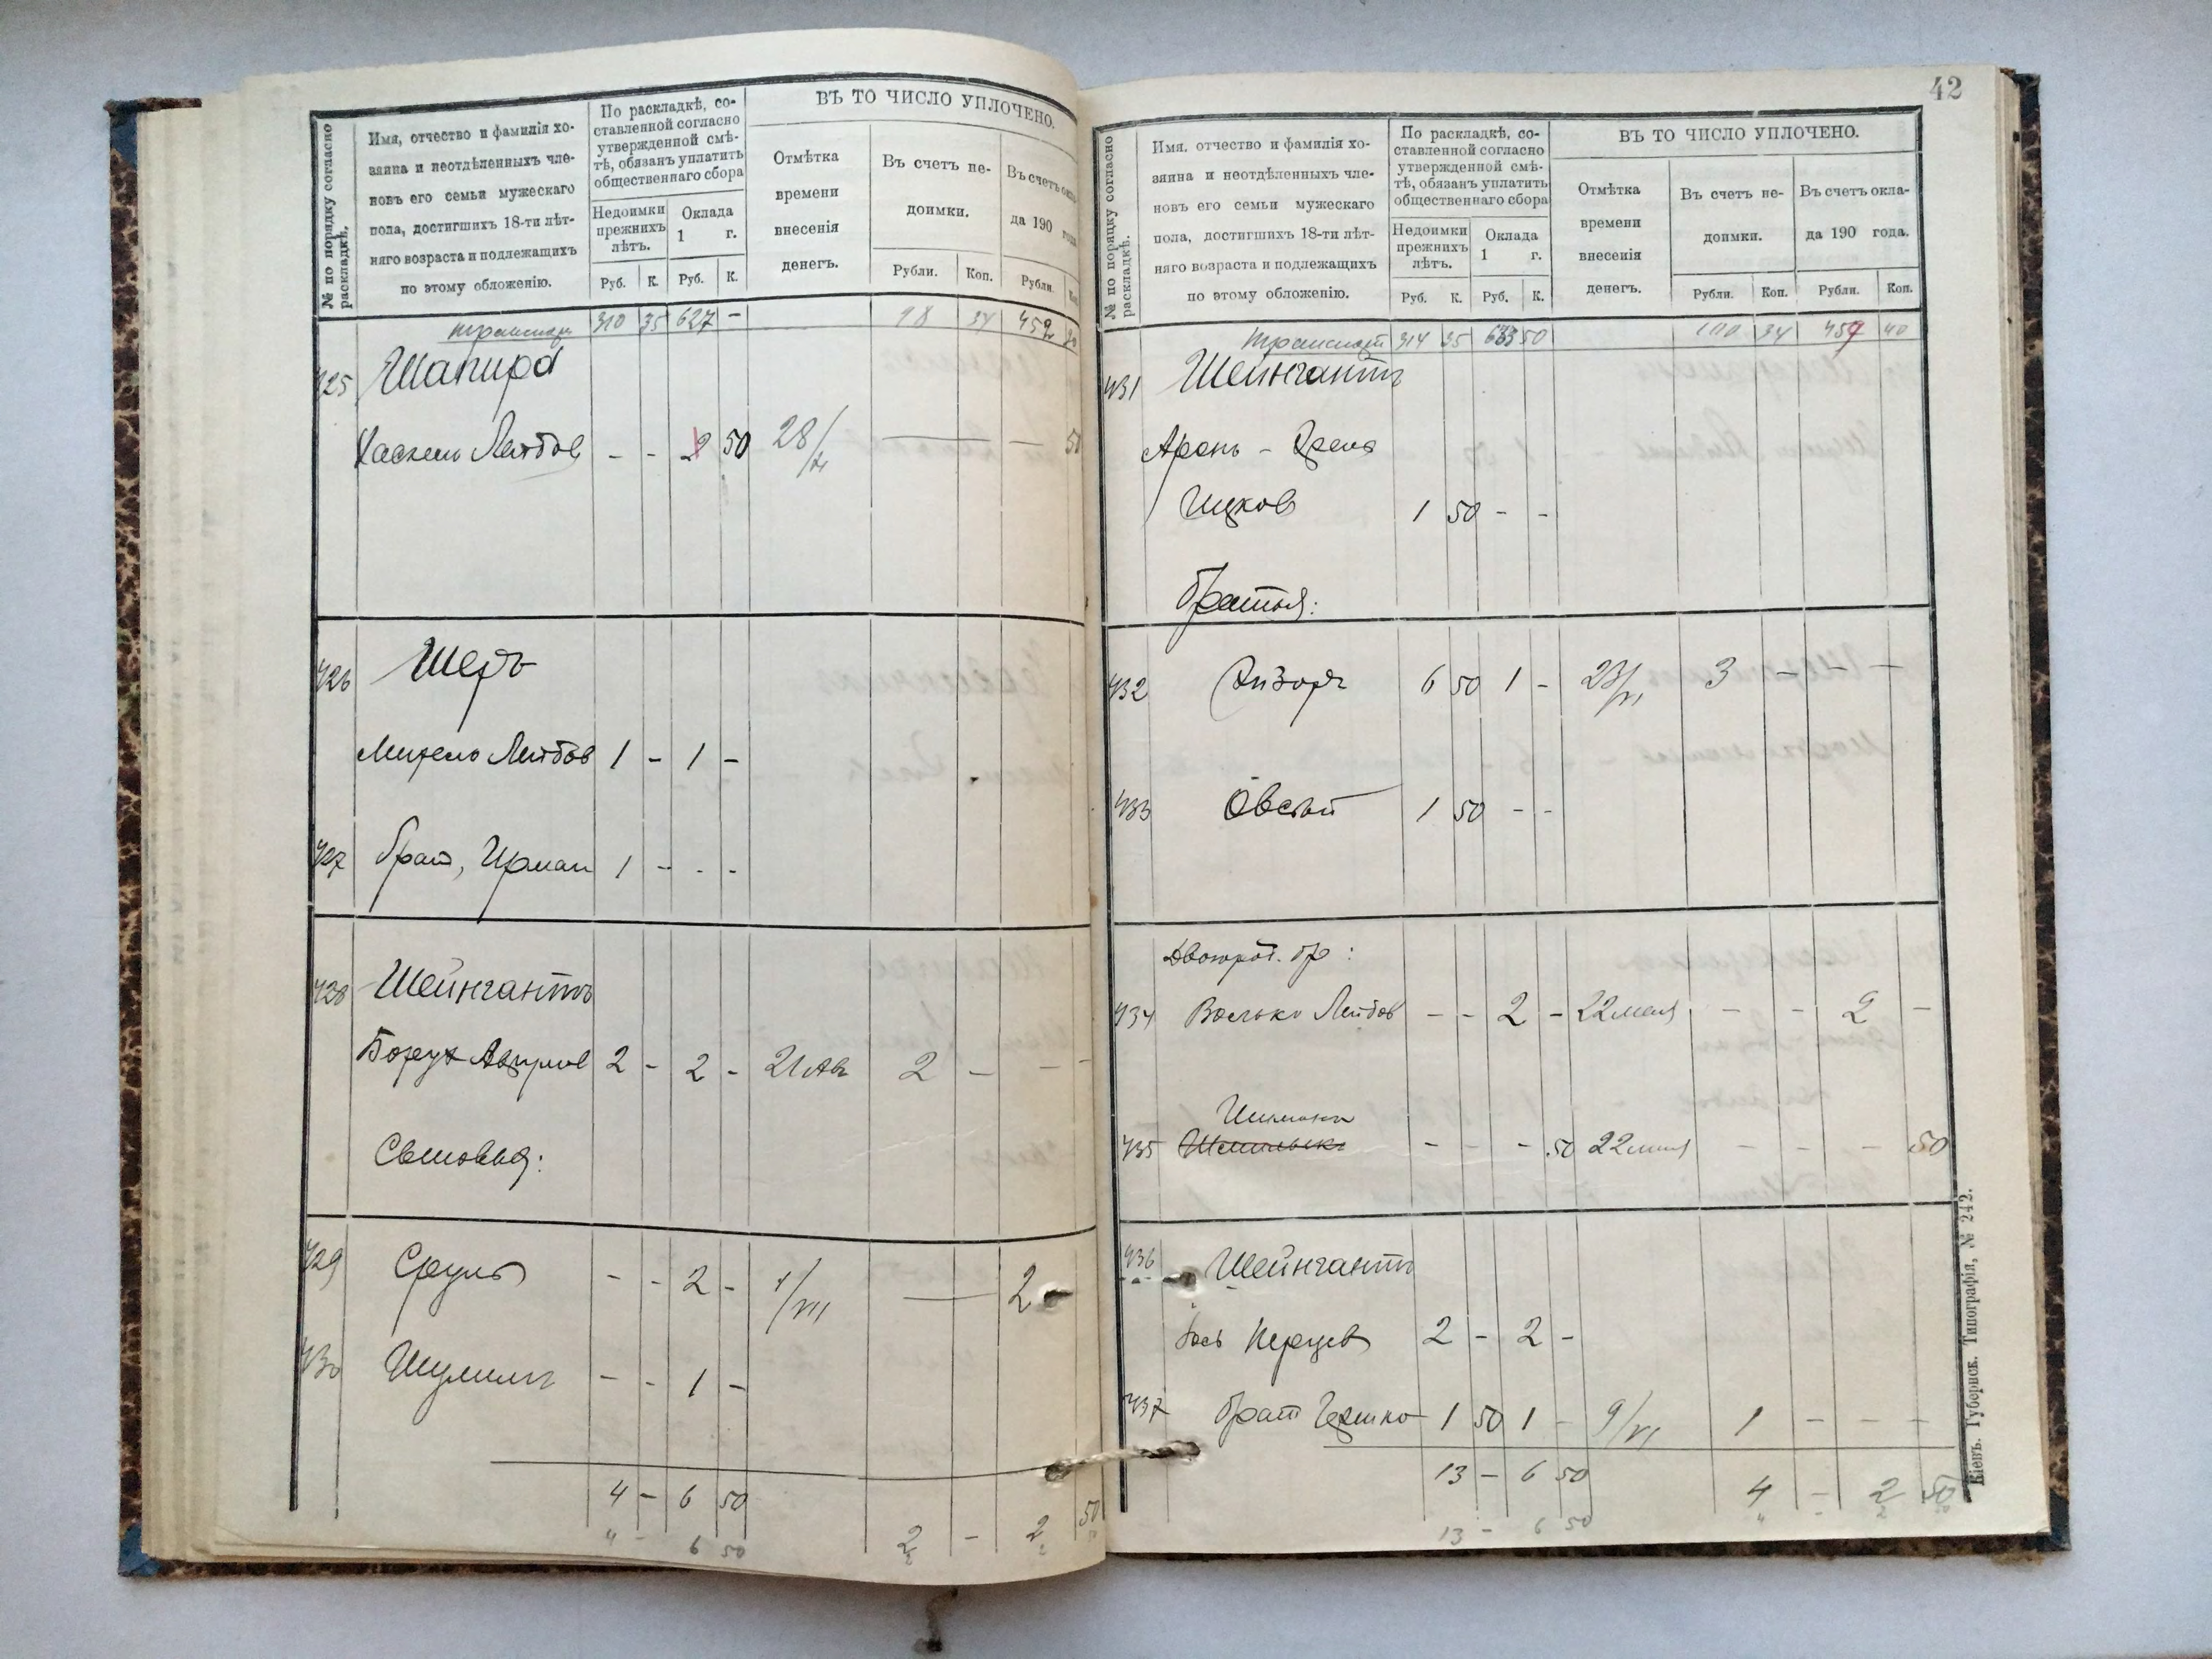 № по порядку согласно раскладкѣ.
Имя, отчество и фамилія хо-
зяина и неотдѣленныхъ чле-
новъ его семьи мужескаго
пола, достигшихъ 18-ти лѣт-
няго возраста и подлежащихъ
по этому обложенію.
По раскладкѣ, со-
ставленной согласно
утвержденной смѣ-
тѣ, обязанъ уплатить
общественнаго сбора
Недоимки прежнихъ лѣтъ.
Оклада 1 г.
Руб. К. Руб. К.
ВЪ ТО ЧИСЛО УПЛОЧЕНО.
Отмѣтка
времени
внесенія
денегъ.
Въ счетъ не-
доимки.
Въ счетъ окла
да 190 года
Рубли. Коп. Рубли. Коп
транспортъ 310 35 627 - 98 34 452
425 Шапиро
Хаскель Лейбов - - 2 50 28/ — — 50
426 Шеръ
Лейбов 1 - 1 -
427 брат, 1 - - -
428 Шейнгантъ
Борух 2 - 2 - 21 Ав 2 — — -
Сыновья:
429 Сруль - - 2 - 1/VII — 2
430 Шулимъ - - 1 -
4 - 6 50 2 - 2 50
4 - 6 50 2 2 50
42
№ по порядку согласно раскладкѣ.
Имя, отчество и фамилія хо-
зяина и неотдѣленныхъ чле-
новъ его семьи мужескаго
пола, достигшихъ 18-ти лѣт-
няго возраста и подлежащихъ
по этому обложенію.
По раскладкѣ, со-
ставленной согласно
утвержденной смѣ-
тѣ, обязанъ уплатить
общественнаго сбора
Недоимки прежнихъ лѣтъ.
Оклада 1 г.
Руб. К. Руб. К.
ВЪ ТО ЧИСЛО УПЛОЧЕНО.
Отмѣтка
времени
внесенія
денегъ.
Въ счетъ не-
доимки.
Въ счетъ окла-
да 190 года.
Рубли. Коп. Рубли. Коп.
транспортъ 314 35 633 50 100 34 454 40
431 Шейнгантъ
Аронъ -
Ицков 1 50 - -
братья:
432 6 50 1 - 23/VI 3 - - -
433 Овсей 1 50 - -
Двоюрод. бр:
434 Волько Лейбов - - 2 - 22 мая - - 2 -
435 Шимонъ - - - 50 22 мая - - - 50
436 Шейнгантъ
Герцев 2 - 2 -
437 брат Гершко 1 50 1 - 9/VI 1 - - -
13 - 6 50 4 - 2 50
13 - 6 50 4 - 2 50
Кіевъ. Губернск. Типографія, № 242.